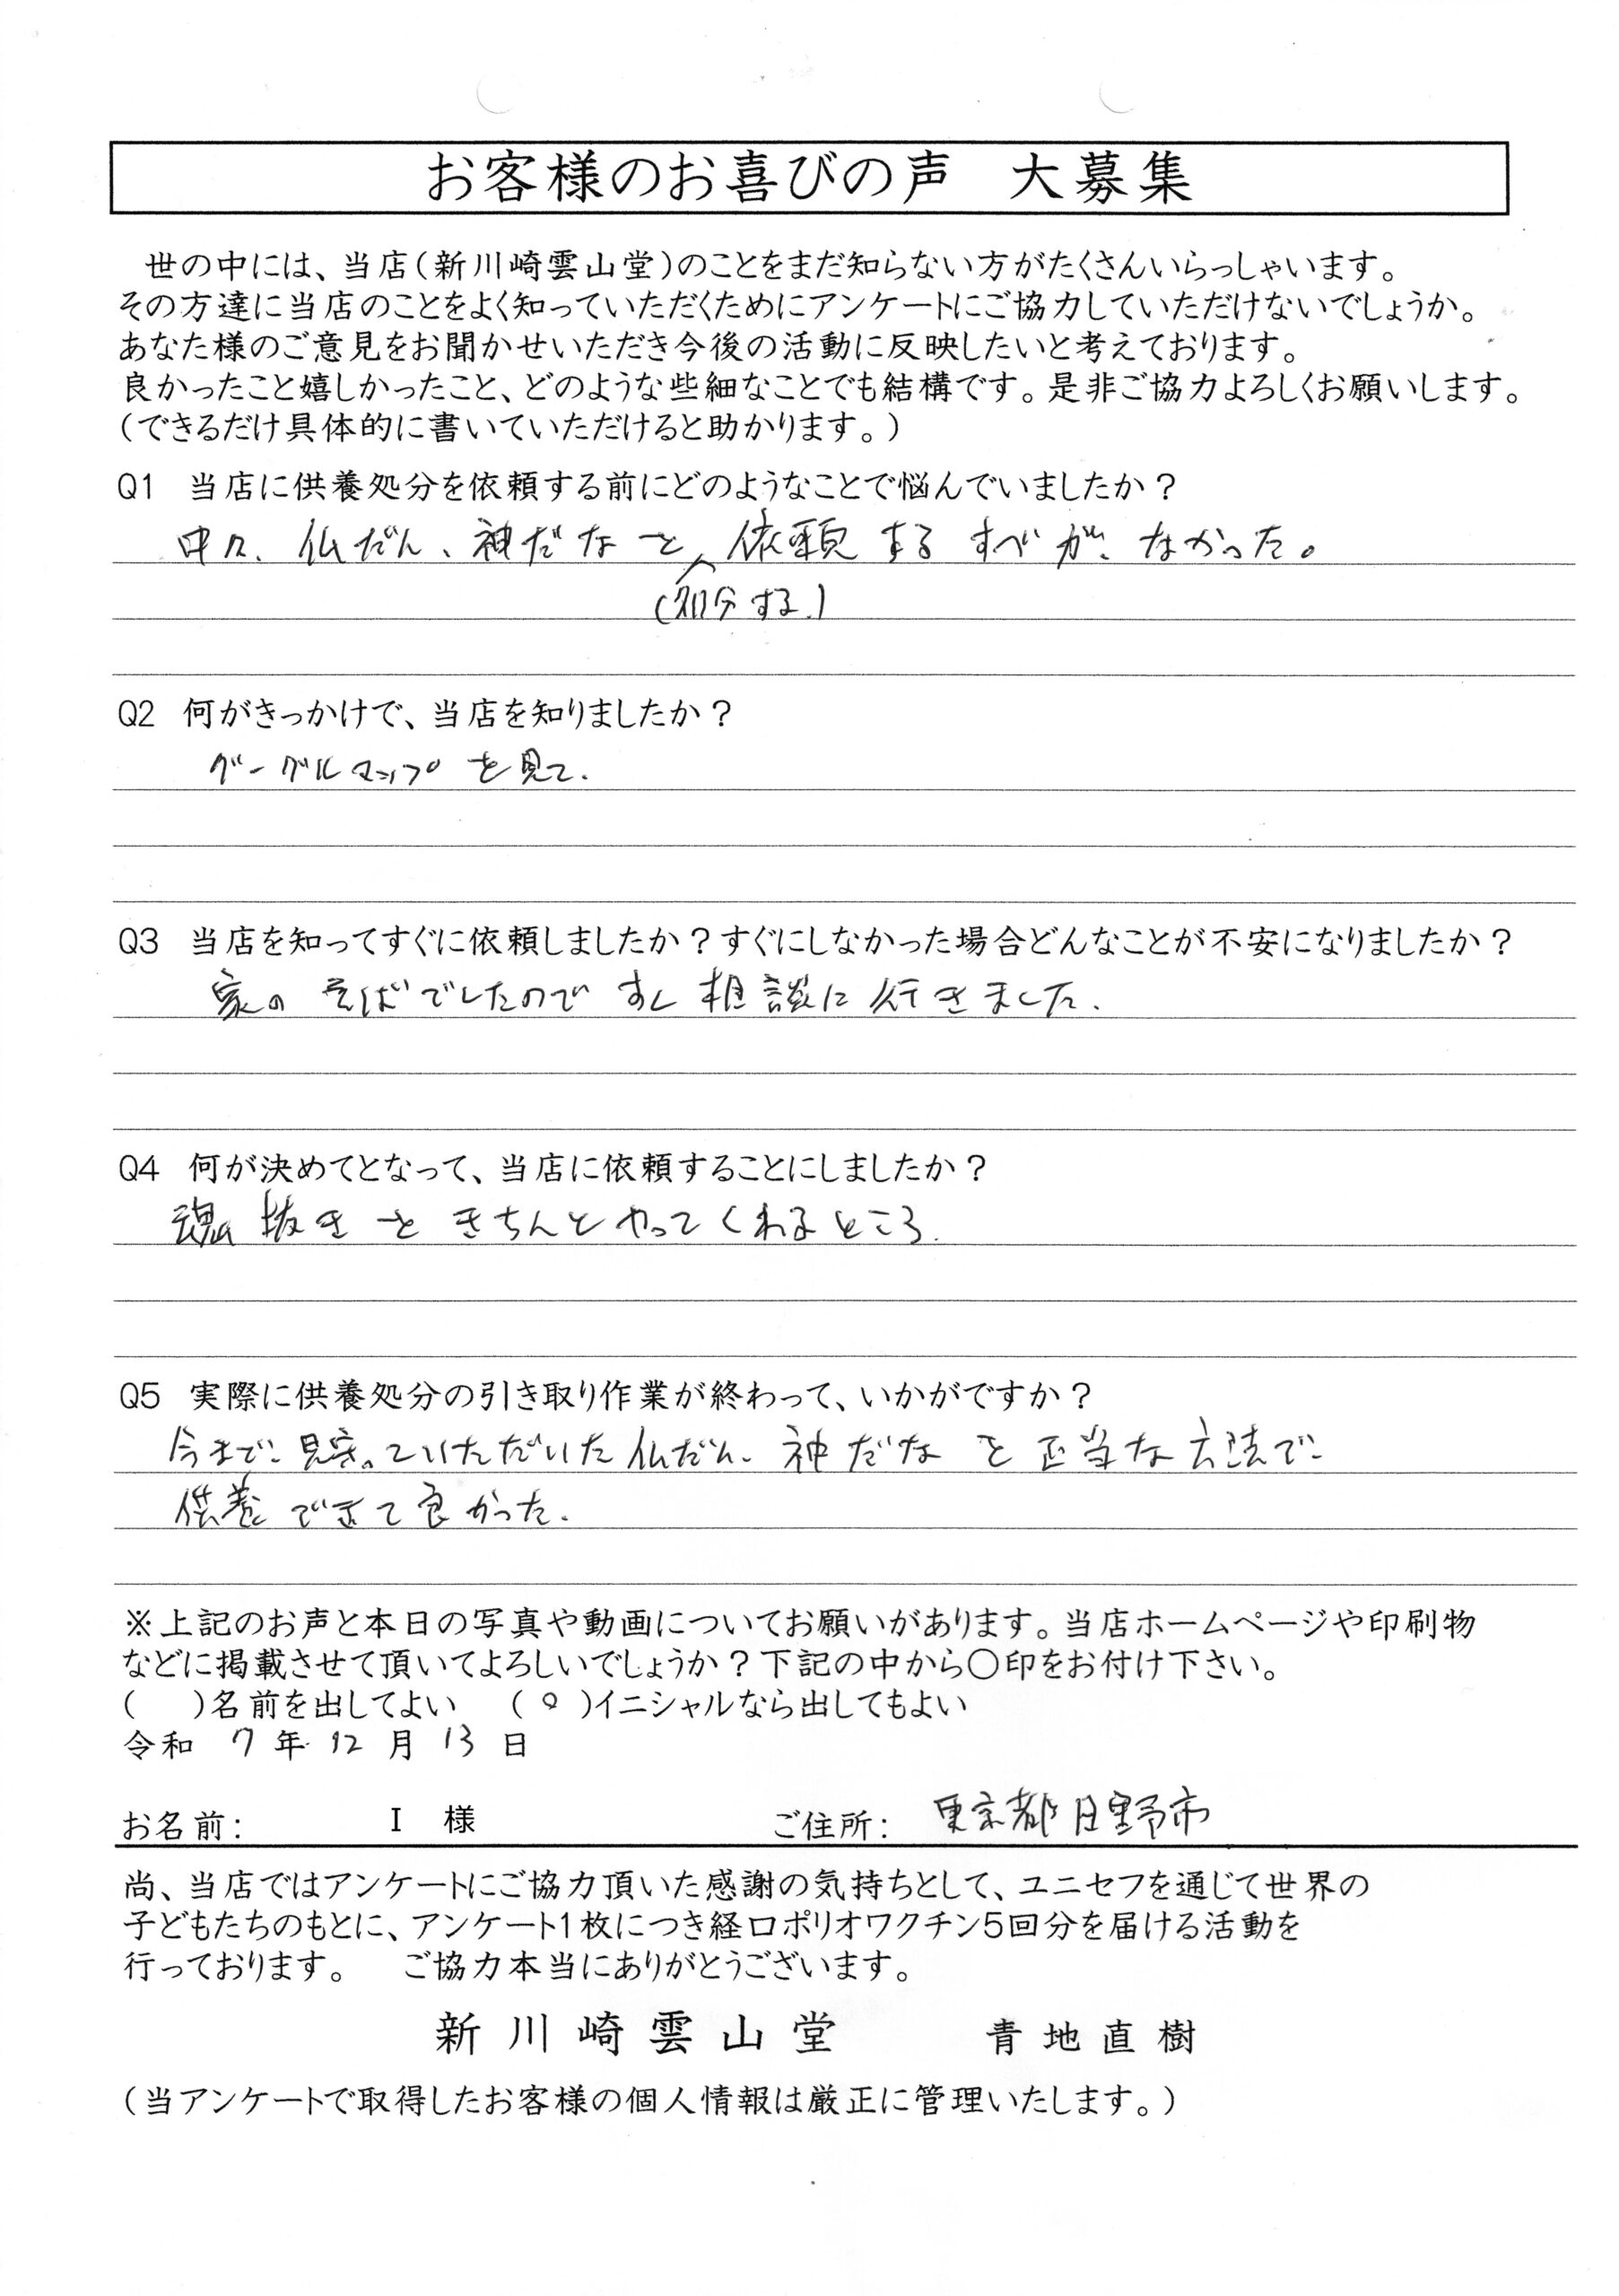 お客様のお喜びの声　大募集
世の中には、当店(新川崎雲山堂)のことをまだ知らない方がたくさんいらっしゃいます。
その方達に当店のことをよく知っていただくためにアンケートにご協力していただけないでしょうか。
あなた様のご意見をお聞かせいただき今後の活動に反映したいと考えております。
良かったこと嬉しかったこと、どのような些細なことでも結構です。是非ご協力よろしくお願いします。
(できるだけ具体的に書いていただけると助かります。)
Q1　当店に供養処分を依頼する前にどのようなことで悩んでいましたか？
中々、仏だん、神だなを、依頼するすべが、なかった。
(処分する)
Q2　何がきっかけで、当店を知りましたか？
グーグルマップを見て.
Q3　当店を知ってすぐに依頼しましたか？すぐにしなかった場合どんなことが不安になりましたか？
家のそばでしたので すぐ相談に行きました.
Q4　何が決めてとなって、当店に依頼することにしましたか？
魂抜きをきちんとやってくれるところ.
Q5　実際に供養処分の引き取り作業が終わって、いかがですか？
今まで見守っていただいた仏だん、神だなを正当な方法で
供養できて良かった.
※上記のお声と本日の写真や動画についてお願いがあります。当店ホームページや印刷物
などに掲載させて頂いてよろしいでしょうか？下記の中から〇印をお付け下さい。
(　　)名前を出してよい　　(　○　)イニシャルなら出してもよい
令和 7 年 12 月 13 日
お名前:　　I 様　　ご住所: 東京都日野市
尚、当店ではアンケートにご協力頂いた感謝の気持ちとして、ユニセフを通じて世界の
子どもたちのもとに、アンケート1枚につき経口ポリオワクチン5回分を届ける活動を
行っております。　ご協力本当にありがとうございます。
新川崎雲山堂　　青地直樹
(当アンケートで取得したお客様の個人情報は厳正に管理いたします。)